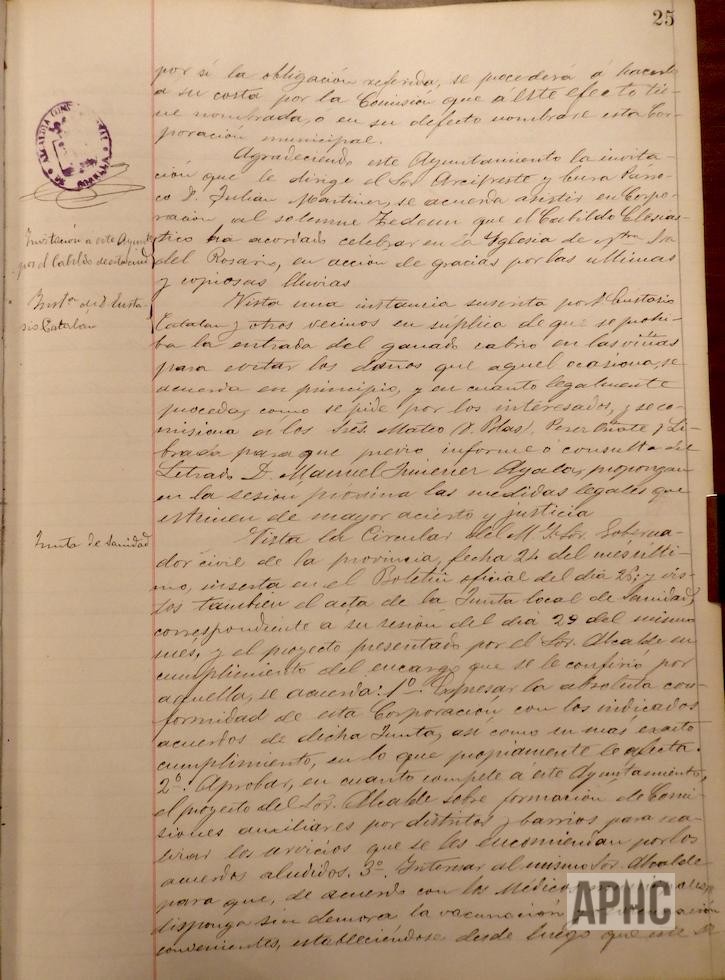 25
por sí la obligación referida, se procederá á hacerlo
a su costa por la Comisión que á este efecto tie-
ne nombrada, o en su defecto nombrare esta Cor-
poración municipal.
Agradeciendo este Ayuntamiento la invita-
ción que le dirige el Sor. Arcipreste y Cura Parro-
co D. Julian Martinez, se acuerda asistir en Corpo-
ración al solemne Tedeum que el Cabildo Eclesias-
tico ha acordado celebrar en la Iglesia de Ntra. Sra.
del Rosario, en acción de gracias por las ultimas
y copiosas lluvias
Invitación a este Ayunto.
por el Cabildo de esta
Vista una instancia suscrita por D. Eustasio
Catalan y otros vecinos en súplica de que se prohi-
ba la entrada del ganado cabrio en las viñas
para evitar los daños que aquel ocasiona, se
acuerda en principio, y en cuanto legalmente
proceda, como se pide por los interesados, y se co-
misiona a los Sres. Mateo (D. Blas), Perez Oñate y Li-
brada para que previo informe ó consulta del
Letrado D. Manuel Jimenez Ayala, propongan
en la sesión próxima las medidas legales que
estimen de mayor acierto y justicia
Insta. de D. Eusta-
sio Catalan
Vista la Circular del M. I. Sor. Goberna-
dor civil de la provincia, fecha 24 del mes ulti-
mo, inserta en el Boletin oficial del dia 26; y vis-
tos tambien el acta de la Junta local de Sanidad,
correspondiente a su sesión del dia 29 del mismo
mes, y el proyecto presentado por el Sor. Alcalde en
cumplimiento del encargo que se le confirió por
aquella, se acuerda: 1º. Expresar la absoluta con-
formidad de esta Corporación con los indicados
acuerdos de dicha Junta, así como su mas exacto
cumplimiento, en lo que propiamente le afecta.
2º. Aprobar, en cuanto compete á este Ayuntamiento,
el proyecto del Sor. Alcalde sobre formación de Comi-
siones auxiliares por distritos y barrios para rea-
lizar los servicios que se les encomiendan por los
acuerdos aludidos. 3º. Interesar al mismo Sor. Alcalde
para que, de acuerdo con los Médicos
disponga sin demora la vacunación
convenientes, estableciéndose desde luego que
Junta de Sanidad
APHC